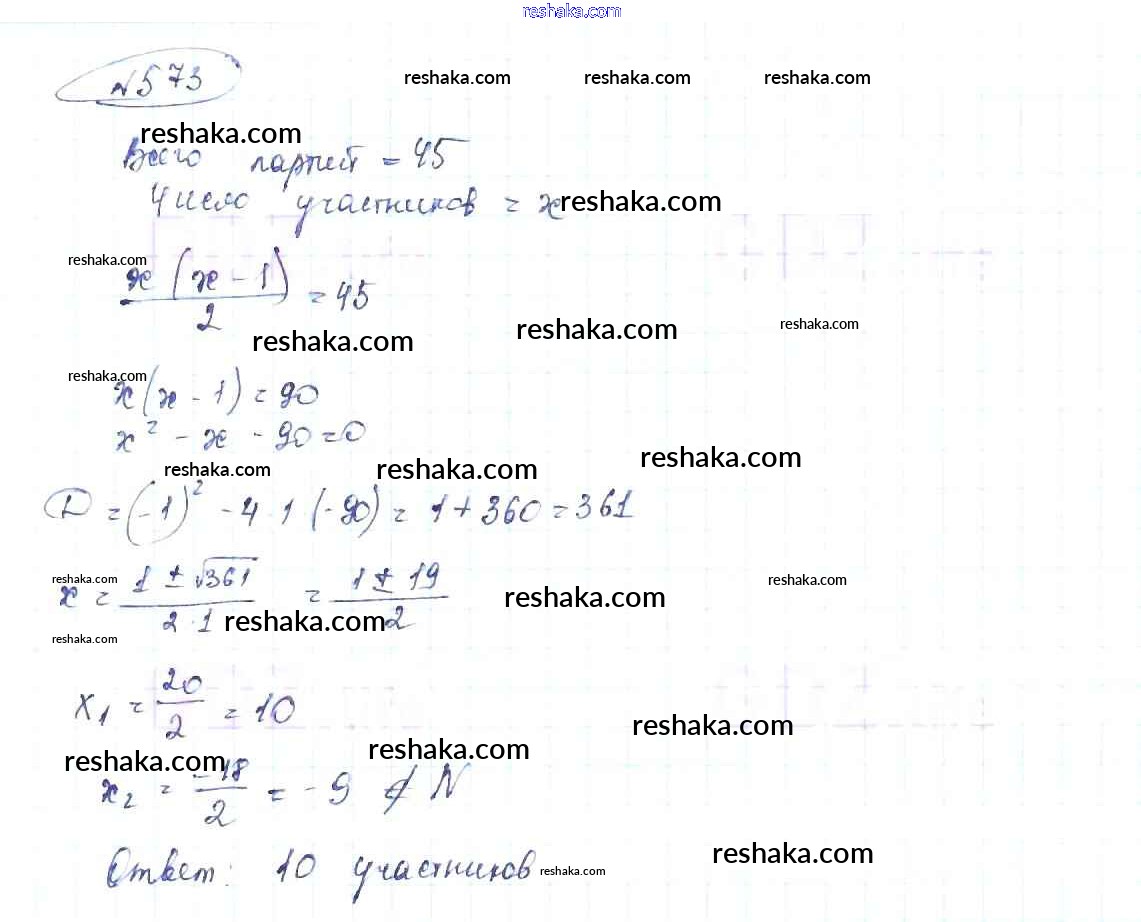 reshaka.com
№573
reshaka.com reshaka.com reshaka.com
reshaka.com
Всего партий = 45
Число участников = x
reshaka.com
reshaka.com
x(x-1)/2 = 45
reshaka.com reshaka.com reshaka.com
reshaka.com
x(x-1) = 90
x² - x - 90 = 0
reshaka.com reshaka.com reshaka.com
D = (-1)² - 4·1(-90) = 1 + 360 = 361
reshaka.com reshaka.com
x = (1 ± √361)/(2·1) = (1 ± 19)/2
reshaka.com reshaka.com
reshaka.com
x₁ = 20/2 = 10
reshaka.com
reshaka.com reshaka.com
x₂ = -18/2 = -9 ∉ N
reshaka.com
Ответ: 10 участников
reshaka.com